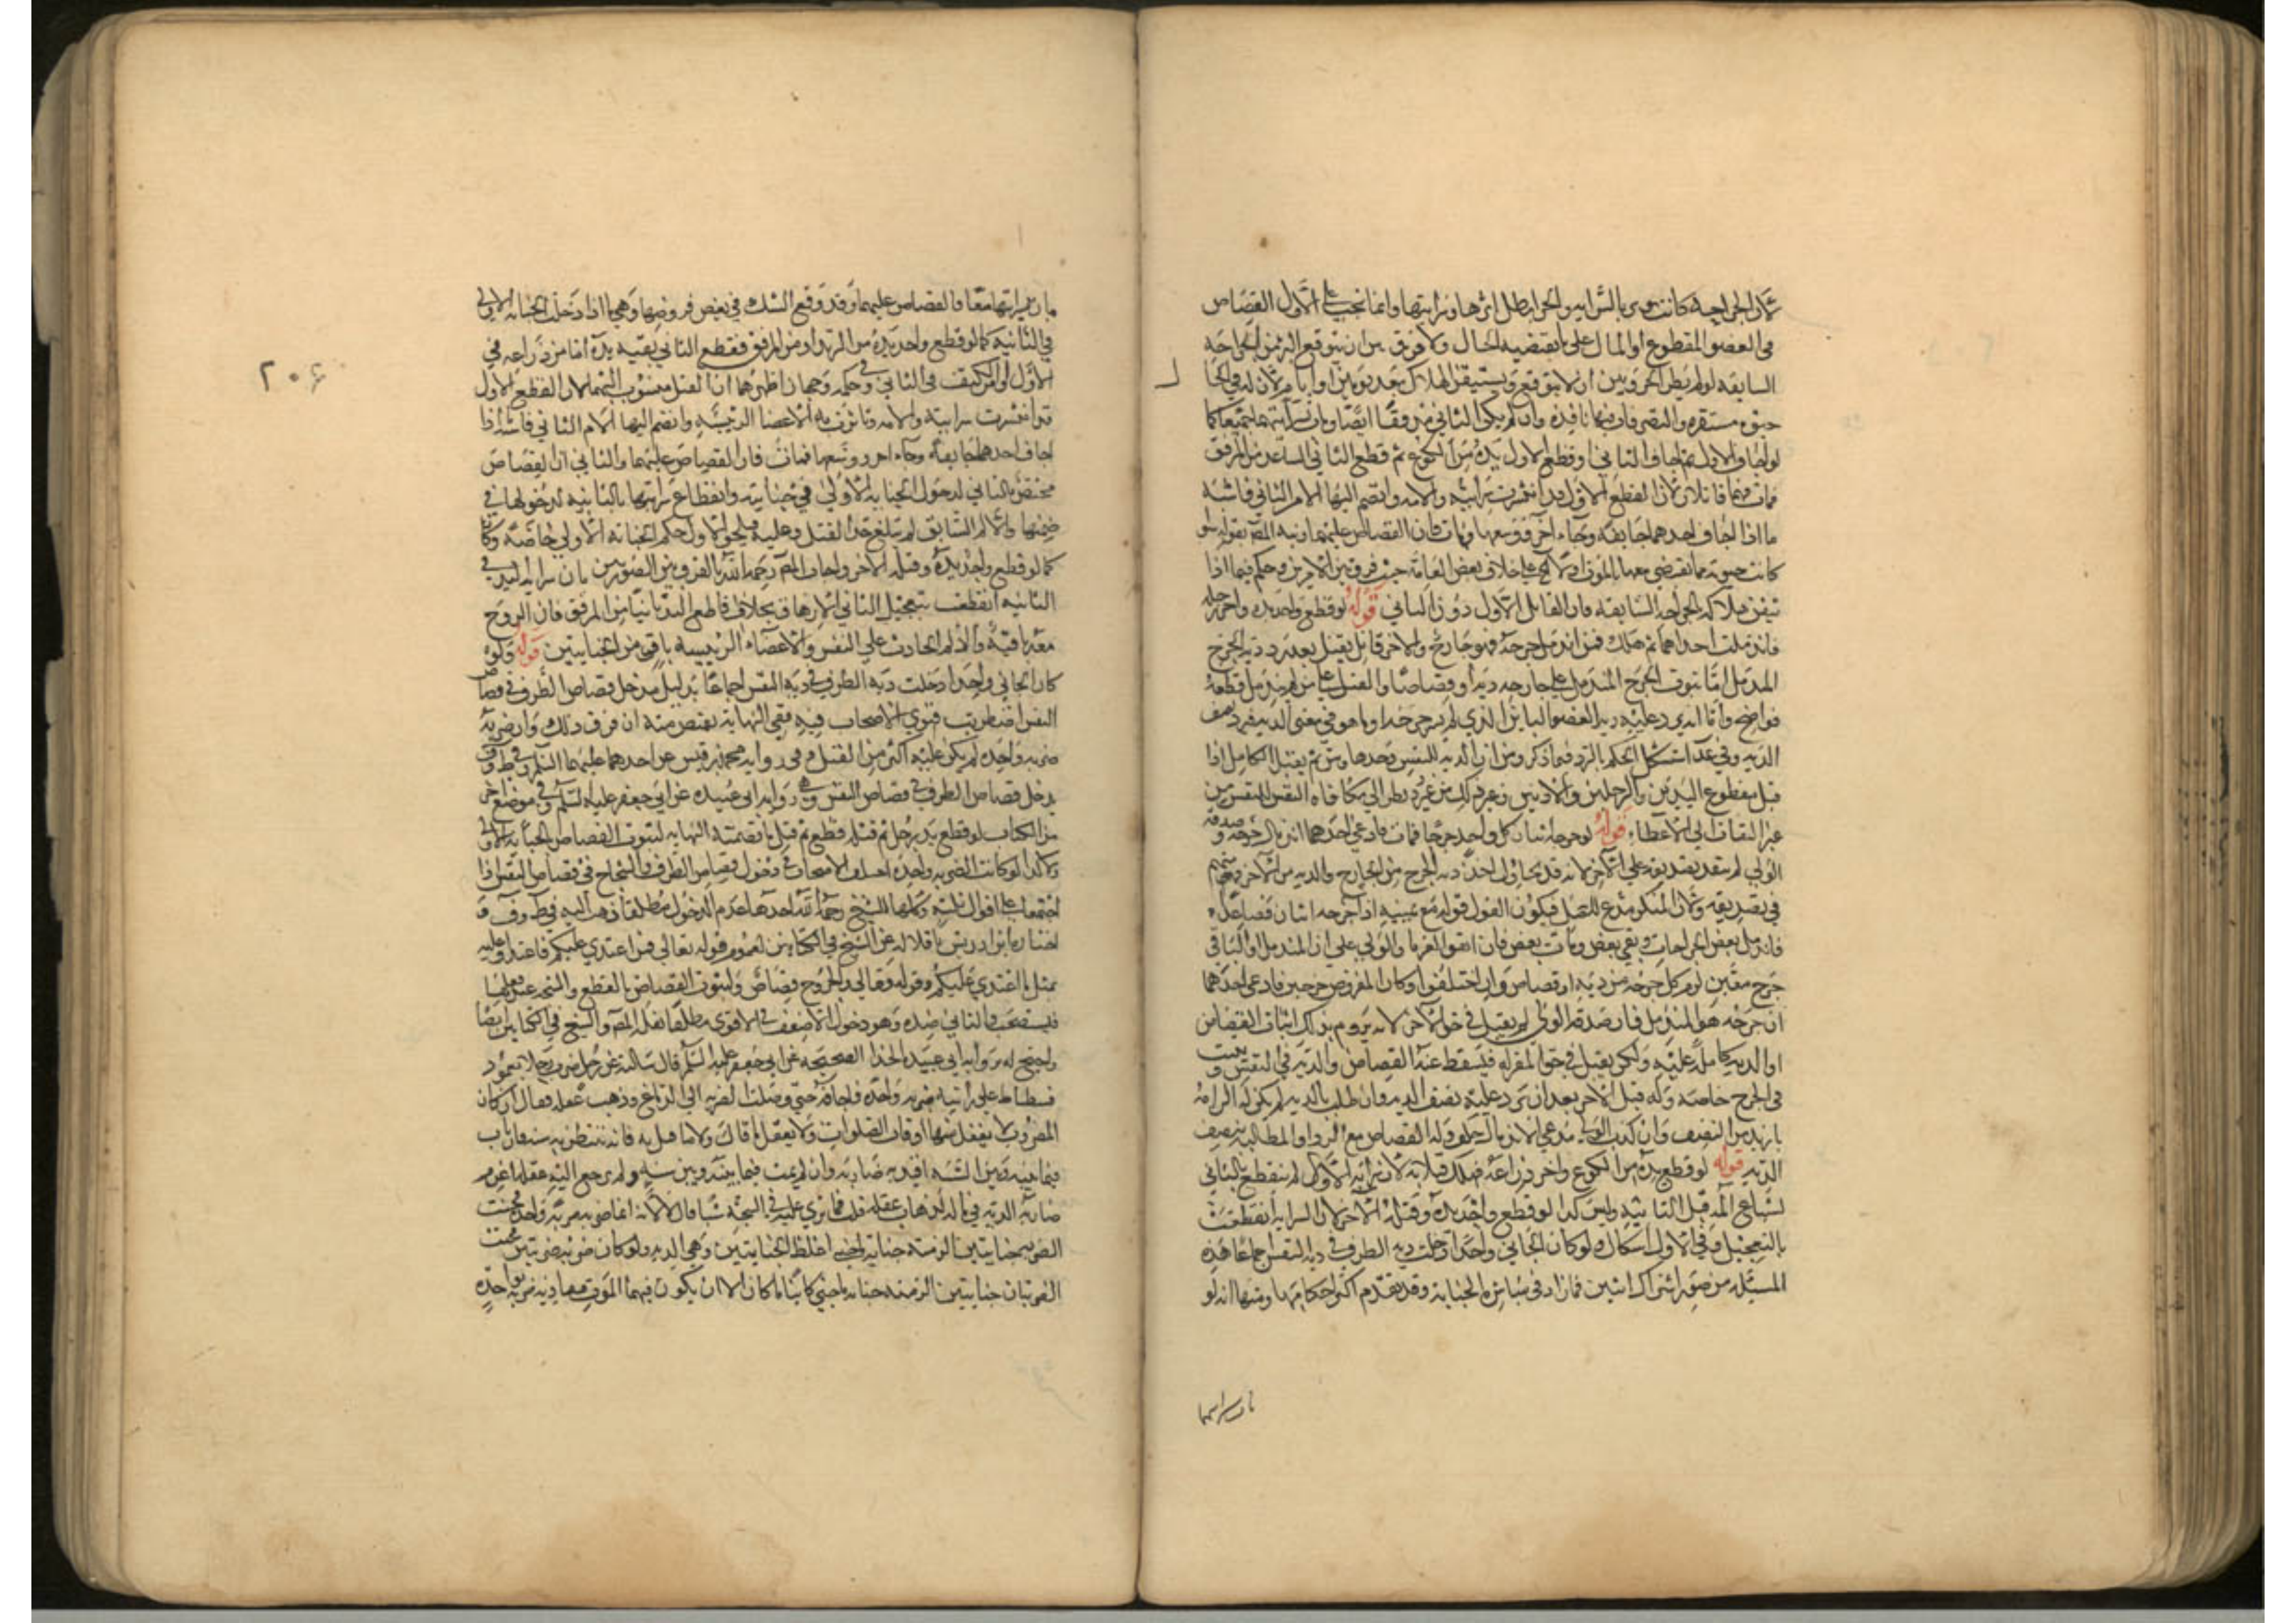 لأن الجراحة كانت بالسراية والجز ابطل اثرها وسرايتها وانما يجب على الاول القصاص
في العضو المقطوع او المال على ما يقتضيه الحال ولا فرق بين ان يتوقع البرء من الجراحة
السابقة لو لم يطرا الجز وبين ان لا يتوقع ويستيقن الهلاك بعد يومين او ايام لأن له في الحال
حيوة مستقرة والتصرفات فيها نافذة وان لم يكن الثاني مزوقًا ايضًا ومات بسرايتهما جميعًا كما
لو اجاف الاول ثم اجاف الثاني او قطع الاول يده من الكوع ثم قطع الثاني الساعد من المرفق
فمات فهما قاتلان لأن القطع الاول قد انتشرت سرايته والامه وانضم اليها الام الثاني فاشبه
ما اذا اجاف احدهما جايفة وجاء اخر فوسعها ومات فان القصاص عليهما ونبه المص بقوله ولو
كانت حيوته مما يقضى معها بالموت على خلاف بعض العامة حيث فرق بين الامرين وحكم فيما اذا
تيقن هلاكه بالجراحة السابقة فان القاتل الاول دون الثاني قوله لو قطع واحد يده واخر رجله
فاندملت احداهما ثم هلك فمن اندمل جرحه فهو جارح والاخر قاتل يقتل بعد رد دية الجرح
المندمل اما ثبوت الجرح المندمل على جارحه دية او قصاصًا والقتل على من لم يندمل قطعه
فواضح واما الرد عليه دية العضو البائن الذي لم يسر جرحه او ما هو في معنى الدية فيرد نصف
الدية وفي عد استشكل الحكم بالرد فيما ذكر ومن ان الدية للنفس وحدها ومن ثم يقتل الكامل اذا
قتل مقطوع اليدين والرجلين والاذنين وغير ذلك من غير رد نظرا الى مكافاة النفس للنفس من
غير التفات الى الاعضاء قوله لو جرحه اثنان كل واحد جرحًا فمات فادعى احدهما اندمال جرحه وصدقه
الولي لم ينفذ تصديقه على الآخر لانه قد يحاول اخذ دية الجرح من الجارح والدية من الآخر فهو متهم
في تصديقه ولان المنكر مدع للاصل فيكون القول قوله مع يمينه اذا جرحه اثنان فصاعدا
فاندمل بعض الجراحات وبقي بعض ومات بعض فان اتفق الغرما والولي على ان المندمل والباقي
جرح معين لزم كل جرحه من دية او قصاص وان اختلفوا وكان المفروض جرحين فادعى احدهما
ان جرحه هو المندمل فان صدقه الولي لم يقبل في حق الآخر لانه يروم بذلك اثبات القصاص
او الدية كاملة عليه ولكن يقبل في حق المقر له فيسقط عنه القصاص والدية في النفس ويثبت
في الجرح خاصة وله قتل الآخر بعد ان يرد عليه نصف الدية وان طلب بالدية لم يكن له الزامه
بازيد من النصف وان كذب الولي مدعي الاندمال حلف وله القصاص مع الرد او المطالبة بنصف
الدية قوله لو قطع يده من الكوع واخر ذراعه فهلك قتلا به لأن سراية الاول لم تنقطع بالثاني
لشياع المه قبل الثانية وليس كذا لو قطع واحد يده وقتله الآخر لان السراية انقطعت
بالتعجيل وفي الاول اشكال ولو كان الجاني واحدا دخلت دية الطرف في دية النفس اجماعًا هذه
المسئلة من صور اشتراك اثنين فما زاد في مباشرة الجناية وقد تقدم اكثر احكامها ومنها انه لو
مات بسرايتهما
مات بسرايتهما معًا فالقصاص عليهما وقد وقع الشك في بعض فروضها وهي ما اذا دخلت الجناية الاولى
في الثانية كما لو قطع واحد يده من الزند او من المرفق فقطع الثاني بقية يده اما من ذراعه في
الاول او من الكتف في الثاني وفي حكمه وجهان اظهرهما ان القتل منسوب اليهما لان القطع الاول
قد انتشرت سرايته والامه وتاثرت به الاعضا الرئيسة وانضم اليها الام الثاني فاشبه اذا
اجاف احدهما جايفة وجاء اخر ووسعها فمات فان القصاص عليهما والثاني ان القصاص
مختص بالثاني لدخول الجناية الاولى في جنايته وانقطاع سرايتها بالثانية لدخولها في
ضمنها والالم السابق لم يبلغ حد القتل وعليه فيلحق الاول حكم الجناية الاولى خاصة وكان
كما لو قطع واحد يده وقتله الآخر واجاب المص رحمه الله بالفرق بين الصورتين بان سراية اليد في
الثانية انقطعت بتعجيل الثاني الازهاق بخلاف قاطع اليد ثانيًا من المرفق فان الروح
معه باقية والالم الحادث على النفس والاعضاء الرئيسة باق من الجنايتين قوله ولو
كان الجاني واحدا دخلت دية الطرف في دية النفس اجماعًا بدليل هل يدخل قصاص الطرف في قصاص
النفس اضطربت فتوى الاصحاب فيه ففي النهاية يقتص منه ان فرق ذلك وان ضربه
ضربة واحدة لم يكن عليه اكثر من القتل وهي رواية محمد بن قيس عن احدهما عليهما السلم وفي ط وف
يدخل قصاص الطرف في قصاص النفس وهي رواية ابي عبيدة عن ابي جعفر عليه السلم وفي موضع اخر
من الكتاب لو قطع يد رجل ثم قتله قطع ثم قتل ما تضمنته النهاية لثبوت القصاص بالجناية الاولى
ولا كذا لو كانت الضربة واحدة اختلف الاصحاب في دخول قصاص الطرف والشجاج في قصاص النفس اذا
اجتمعا على اقوال ثلثة وكلها للشيخ رحمه الله احدها عدم الدخول مطلقا ذهب اليه في ط وف و
اختاره ابن ادريس ناقلا له عن الشيخ في الكتابين لعموم قوله تعالى فمن اعتدى عليكم فاعتدوا عليه
بمثل ما اعتدى عليكم وقوله تعالى والجروح قصاص ولثبوت القصاص بالقطع والشجة عند فعلهما
فيستصحب والثاني ضده وهو دخول الاضعف في الاقوى مطلقا نقله المص والشيخ في الكتابين ايضا
واحتج له برواية ابي عبيدة الحذا الصحيحة عن ابي جعفر عليه السلم قال سالته عن رجل ضرب رجلا بعمود
فسطاط على راسه ضربة واحدة فاجافه حتى وصلت الضربة الى الدماغ وذهب عقله فقال ان كان
المضروب لا يعقل منها اوقات الصلوات ولا يعقل ما قال ولا ما قيل به فانه ينتظر به سنة فان مات
فيما بينه وبين السنة اقيد به ضاربه وان لم يمت فيما بينه وبين سنة ولم يرجع اليه عقله اغرم
ضاربه الدية في ماله لذهاب عقله قلت فما ترى عليه في الشجة شيئا قال لا لانه انما ضربه ضربة واحدة فجنت
الضربة جنايتين الزمته جناية اغلظ الجنايتين وهي الدية ولو كان ضربه ضربتين فجنت
الضربتان جنايتين الزمته جناية ما جنتا كائنًا ما كان الا ان يكون فيهما الموت فيقاد به ضربة واحدة
٢٠٤